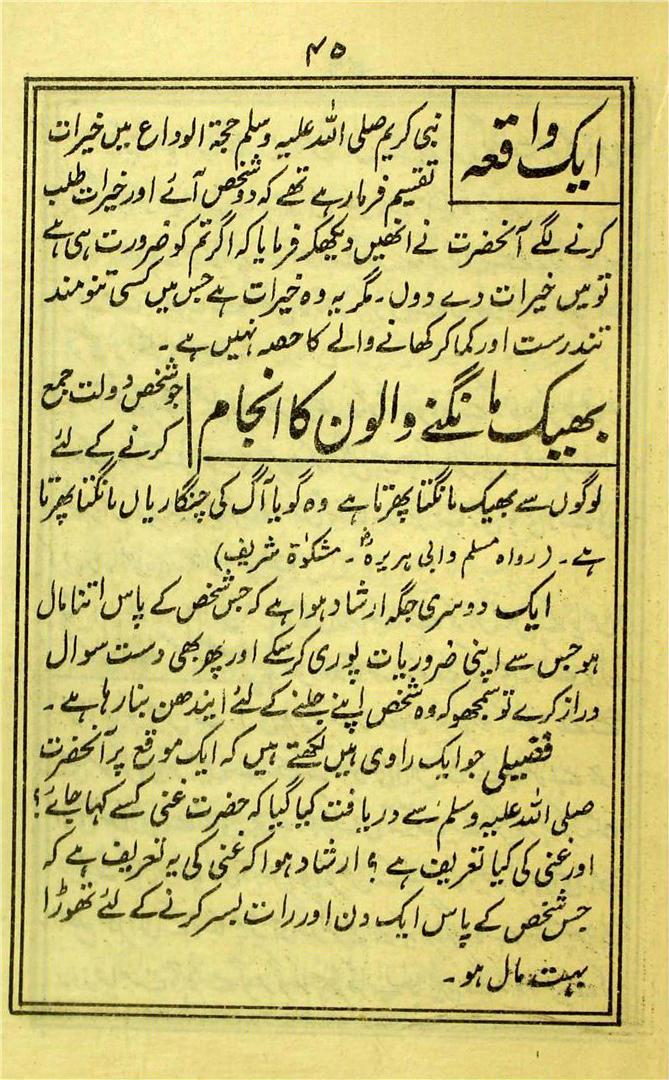 ۴۵
ایک واقعہ
نبی کریم صلی اللہ علیہ وسلم حجۃ الوداع میں خیرات
تقسیم فرما رہے تھے کہ دو شخص آئے اور خیرات طلب
کرنے لگے آنحضرت نے انھیں دیکھکر فرمایا کہ اگر تم کو ضرورت ہی ہے
تو میں خیرات دے دوں ۔ مگر یہ وہ خیرات ہے جس میں کسی تنومند
تندرست اور کما کر کھانے والے کا حصہ نہیں ہے ۔
بھیک مانگنے والون کا انجام
جو شخص دولت جمع
کرنے کے لئے
لوگوں سے بھیک مانگتا پھرتا ہے وہ گویا آگ کی چنگاریاں مانگتا پھرتا
ہے ۔ (رواہ مسلم وابی ہریرہؓ ۔ مشکوٰۃ شریف)
ایک دوسری جگہ ارشاد ہوا ہے کہ جس شخص کے پاس اتنا مال
ہو جس سے اپنی ضروریات پوری کرسکے اور پھر بھی دست سوال
دراز کرے تو سمجھو کہ وہ شخص اپنے جلنے کے لئے ایندھن بنا رہا ہے ۔
فقیلی جو ایک راوی ہیں لکھتے ہیں کہ ایک موقع پر آنحضرت
صلی اللہ علیہ وسلم سے دریافت کیا گیا کہ حضرت غنی کسے کہا جائے ؟
اور غنی کی کیا تعریف ہے ؟ ارشاد ہوا کہ غنی کی یہ تعریف ہے کہ
جس شخص کے پاس ایک دن اور رات بسر کرنے کے لئے تھوڑا
بہت مال ہو ۔